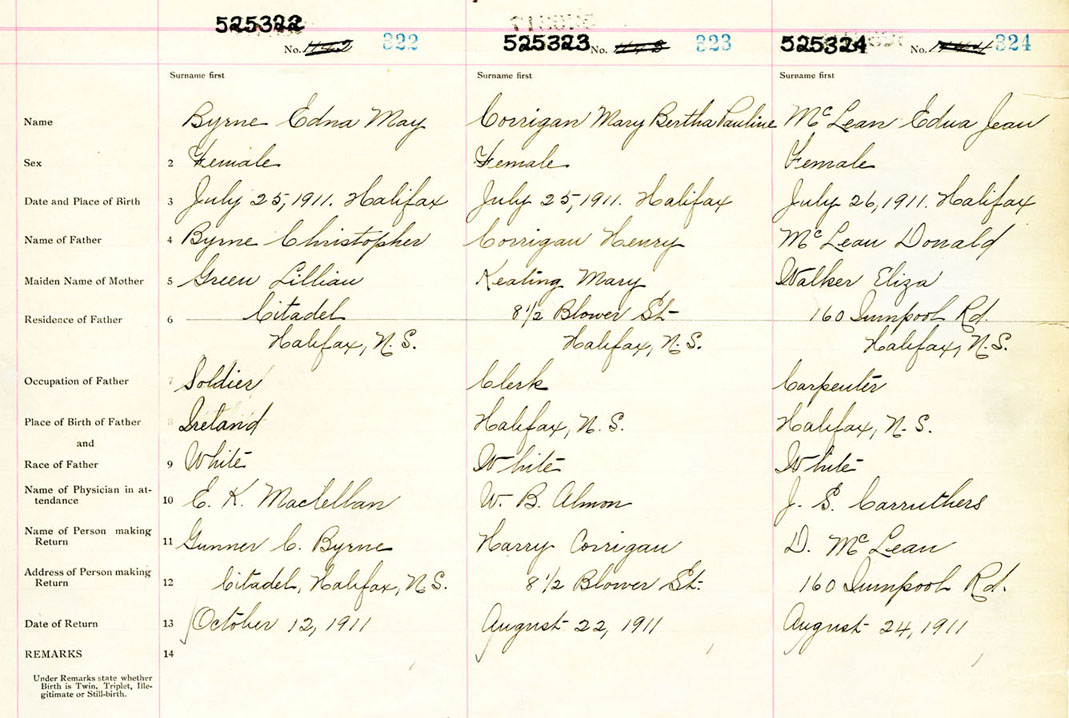 525322 No. 322 525323 No. 323 525324 No. 324
Surname first Surname first Surname first
Name Byrne Edna May Corrigan Mary Bertha Pauline McLean Edna Jean
Sex 2 Female Female Female
Date and Place of Birth 3 July 25, 1911. Halifax July 25, 1911. Halifax July 26, 1911. Halifax
Name of Father 4 Byrne Christopher Corrigan Henry McLean Donald
Maiden Name of Mother 5 Green Lillian Keating Mary Walker Eliza
Residence of Father 6 Citadel 8 1/2 Blower St 160 Rd.
Halifax, N.S. Halifax, N.S. Halifax, N.S.
Occupation of Father 7 Soldier Clerk Carpenter
Place of Birth of Father 8 Ireland Halifax, N.S. Halifax, N.S.
and
Race of Father 9 White White White
Name of Physician in at-
tendance 10 E. K. Maclellan W. B. Almon J. S. Carruthers
Name of Person making
Return 11 Gunner C. Byrne Harry Corrigan D. McLean
Address of Person making
Return 12 Citadel, Halifax, N.S. 8 1/2 Blower St. 160 Rd.
Date of Return 13 October 12, 1911 August 22, 1911 August 24, 1911
REMARKS 14
Under Remarks state whether
Birth is Twin, Triplet, Ille-
gitimate or Still-birth.